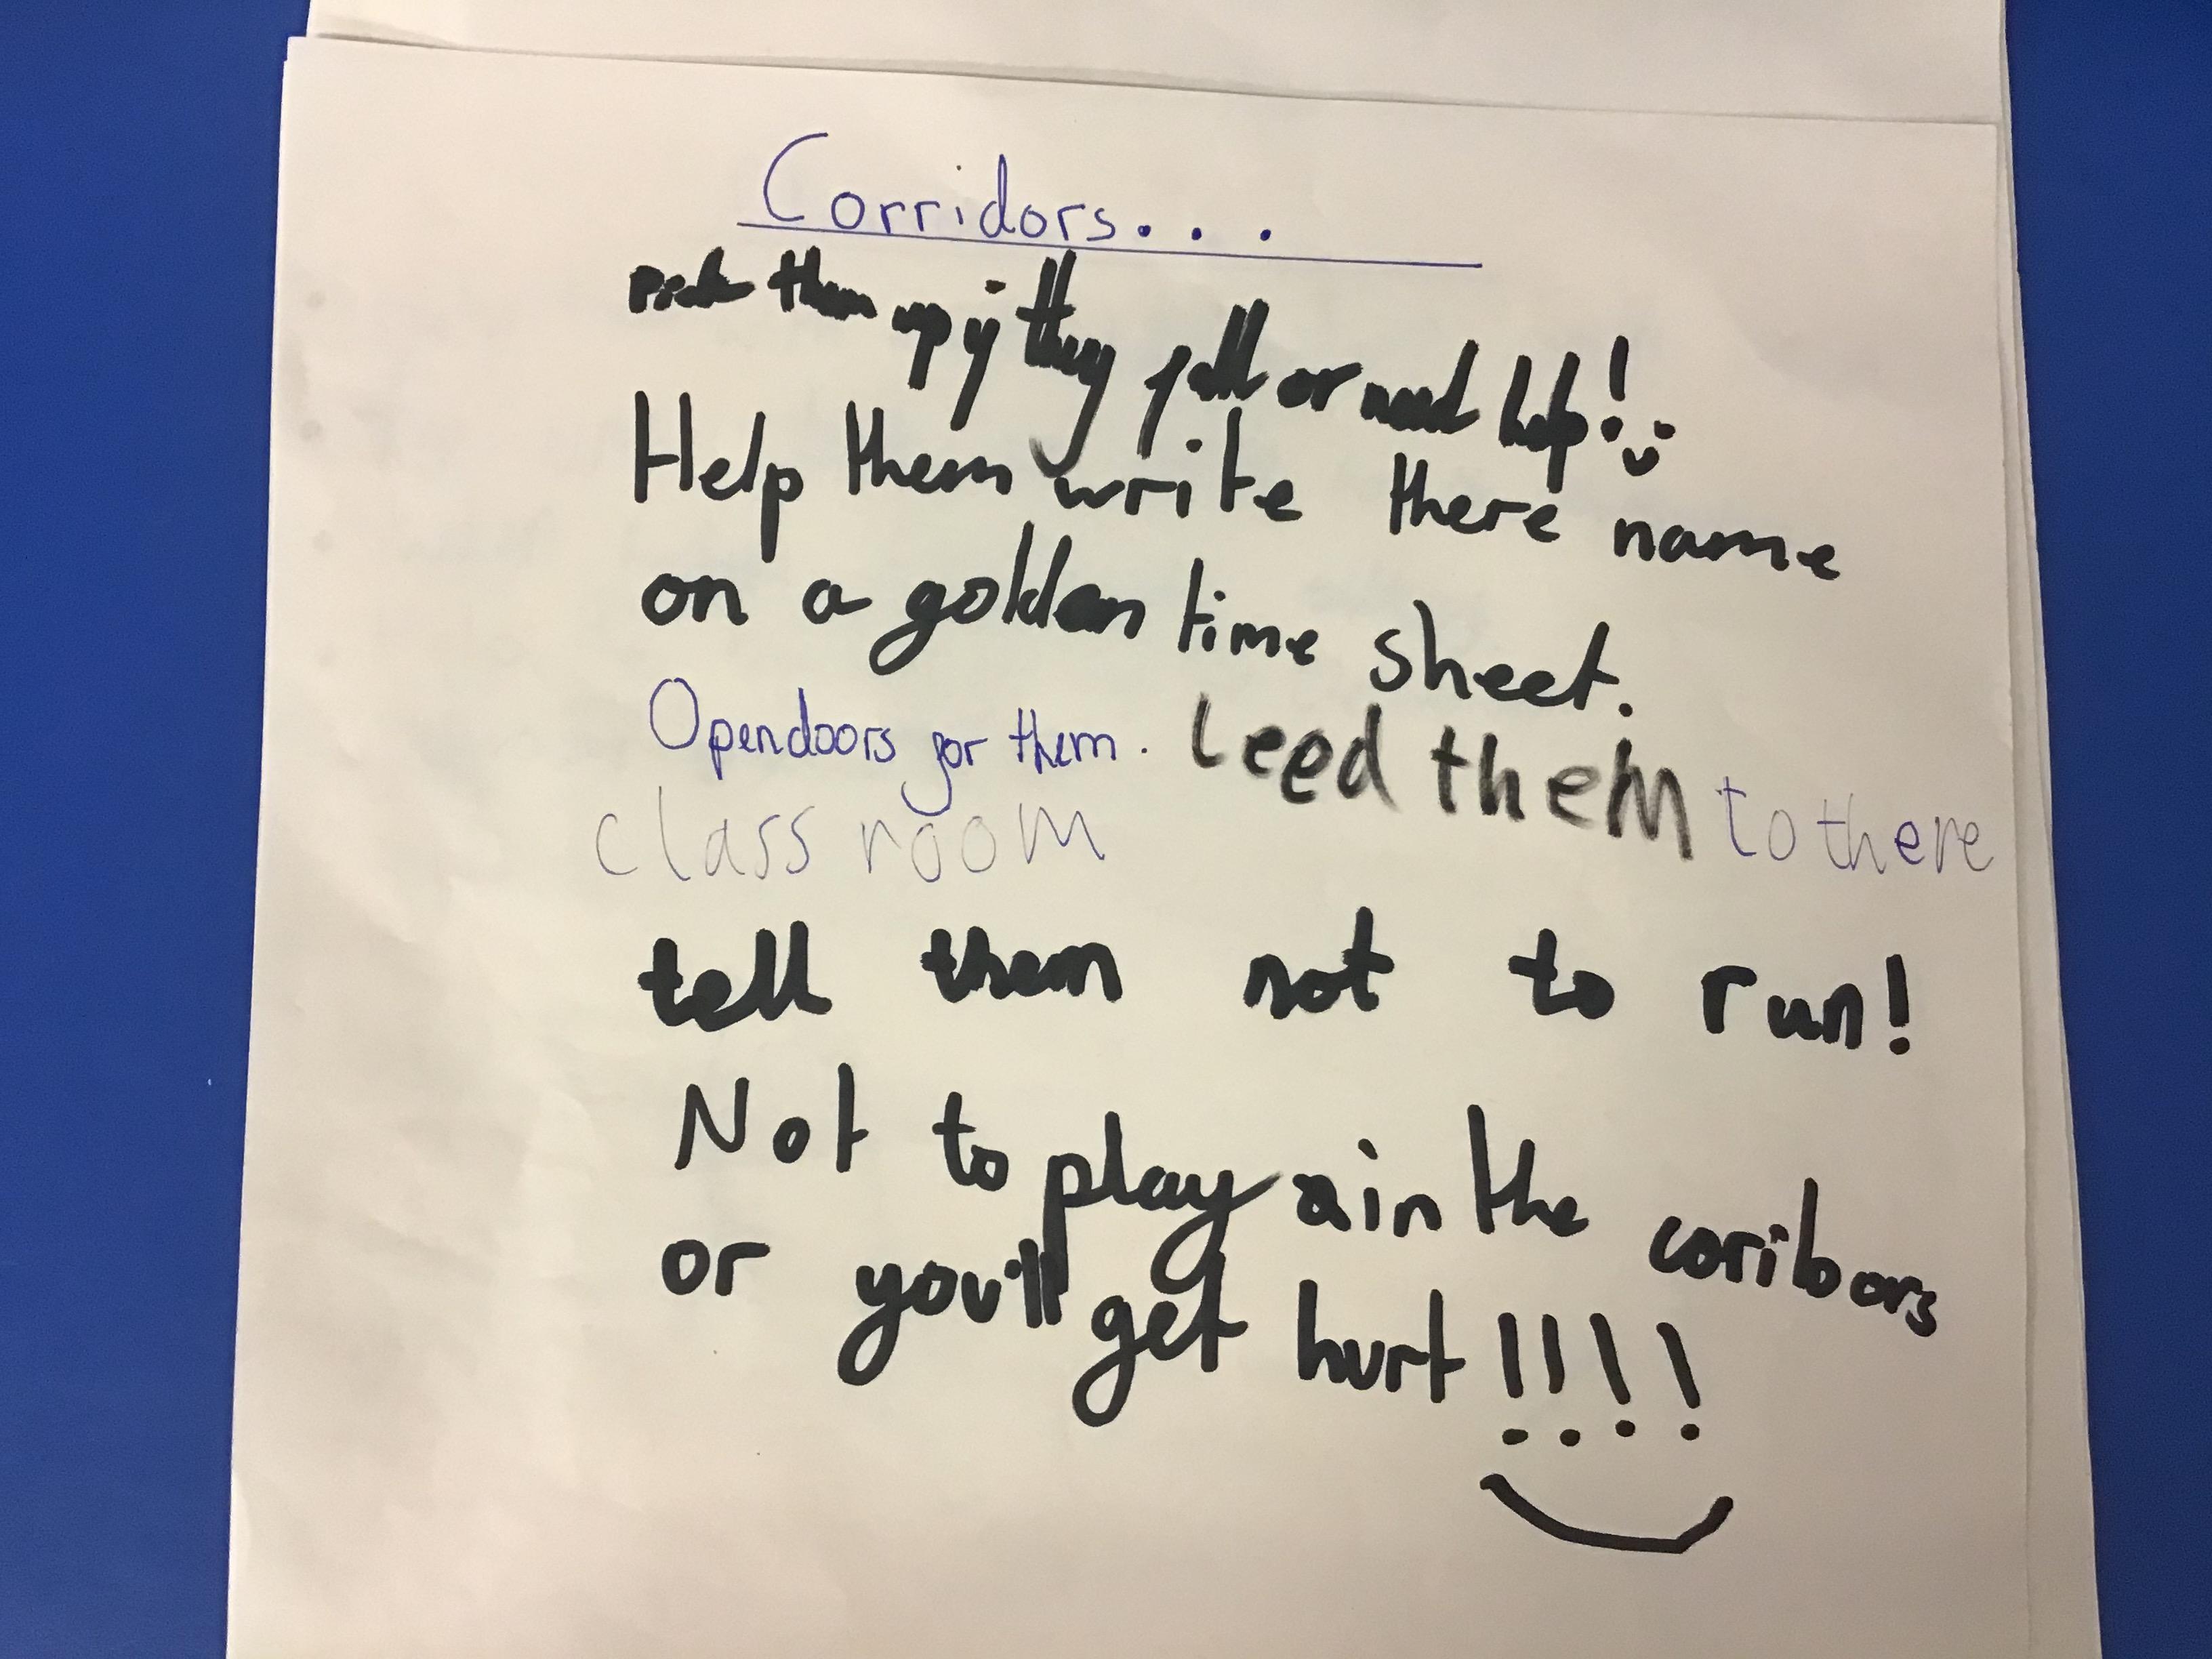 Corridors...
Pick them up if they fall or need help!
Help them write there name
on a golden time sheet.
Open doors for them. Leed them to there
class room
tell them not to run!
Not to play in the coribors
or you'll get hurt!!!!